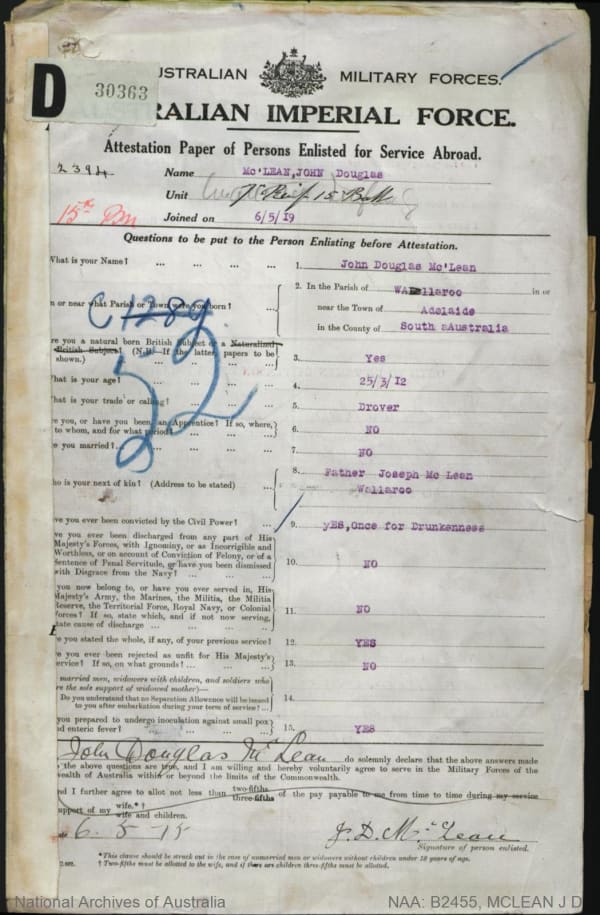 D 30363
USTRALIAN MILITARY FORCES.
RALIAN IMPERIAL FORCE.
Attestation Paper of Persons Enlisted for Service Abroad.
2394 Name Mc'LEAN,JOHN Douglas
Unit 15 Batt
15th Bn Joined on 6/5/19
Questions to be put to the Person Enlisting before Attestation.
What is your Name? ... ... ... ... 1. John Douglas Mc'Lean
2. In the Parish of WAllaroo in or
n or near what Parish or Town were you born? near the Town of Adelaide
in the County of South aAustralia
C1289.
52
re you a natural born British Subject or a Naturalized
British Subject? (N.B.—If the latter, papers to be
shown.) ... ... ... 3. Yes
hat is your age? ... ... ... ... 4. 25/3/12
hat is your trade or calling? ... ... ... 5. Drover
e you, or have you been, an Apprentice? If so, where,
to whom, and for what period? ... ... 6. NO
e you married? ... ... ... ... 7. NO
8. Father Joseph Mc Lean
ho is your next of kin? (Address to be stated) ... Wallaroo
ve you ever been convicted by the Civil Power? ... 9. yES,Once for Drunkenness
ve you ever been discharged from any part of His
Majesty's Forces, with Ignominy, or as Incorrigible and
Worthless, or on account of Conviction of Felony, or of a
Sentence of Penal Servitude, or have you been dismissed
with Disgrace from the Navy? ... ... ... 10. NO
you now belong to, or have you ever served in, His
Majesty's Army, the Marines, the Militia, the Militia
Reserve, the Territorial Force, Royal Navy, or Colonial
Forces? If so, state which, and if not now serving,
tate cause of discharge ... ... ... 11. NO
e you stated the whole, if any, of your previous service? 12. YES
e you ever been rejected as unfit for His Majesty's
ervice? If so, on what grounds? ... ... 13. NO
married men, widowers with children, and soldiers who
re the sole support of widowed mother)—
Do you understand that no Separation Allowance will be issued
to you after embarkation during your term of service? ... 14.
you prepared to undergo inoculation against small pox
nd enteric fever? ... ... ... ... 15. YES
John Douglas McLean do solemnly declare that the above answers made
the above questions are true, and I am willing and hereby voluntarily agree to serve in the Military Forces of the
wealth of Australia within or beyond the limits of the Commonwealth.
nd I further agree to allot not less than two-fifths three-fifths of the pay payable to me from time to time during my service
upport of my wife.*† wife and children.
6-5-15 J. D. McLean
Signature of person enlisted.
*This clause should be struck out in the case of unmarried men or widowers without children under 18 years of age.
† Two-fifths must be allotted to the wife, and if there are children three-fifths must be allotted.
National Archives of Australia NAA: B2455, MCLEAN J D